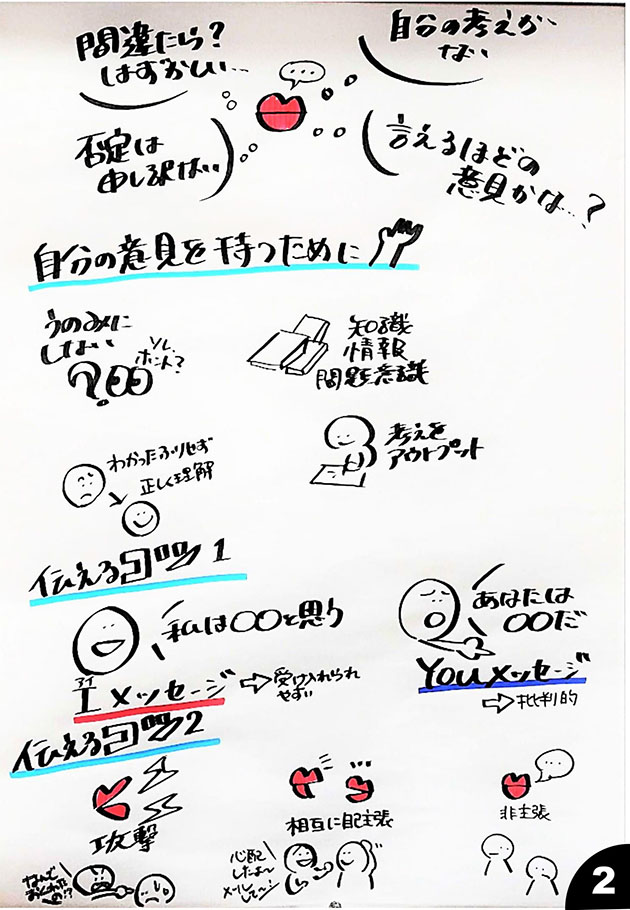 間違たら?
はずかしい…
自分の考えが
ない
否定は
申し訳ない
言えるほどの
意見かな…?
自分の意見を持つために
うのみに
しない
ソレ
ホント?
???
知識
情報
問題意識
わかったふりせず
正しく理解
考えを
アウトプット
伝えるコツ1
私は〇〇と思う
アイ
Iメッセージ
⇨受け入れられ
やすい
あなたは
〇〇だ
Youメッセージ
⇨批判的
伝えるコツ2
攻撃
相互に自己主張
非主張
なんで
おくれたの!?
心配
したよ〜
メールして〜
2